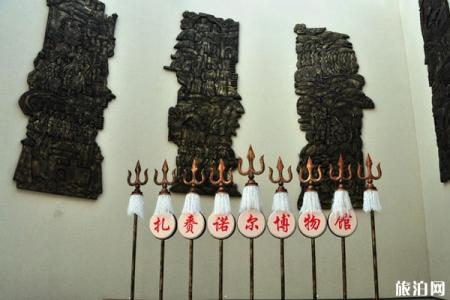 扎赉诺尔博物馆
旅泊网